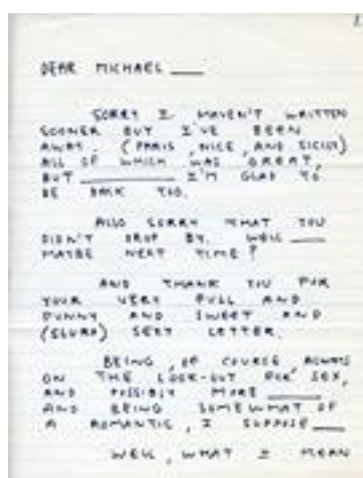 DEAR MICHAEL ___
SORRY I HAVEN'T WRITTEN
SOONER BUT I'VE BEEN
AWAY. (PARIS, NICE, AND SICILY)
ALL OF WHICH WAS GREAT,
BUT ___ I'M GLAD TO
BE BACK TOO.
ALSO SORRY THAT YOU
DIDN'T DROP BY. WELL ___
MAYBE NEXT TIME?
AND THANK YOU FOR
YOUR VERY FULL AND
FUNNY AND SWEET AND
(SLURP) SEXY LETTER.
BEING, OF COURSE ALWAYS
ON THE LOOK-OUT FOR SEX,
AND POSSIBLY MORE ___
AND BEING SOMEWHAT OF
A ROMANTIC, I SUPPOSE ___
WELL, WHAT I MEAN